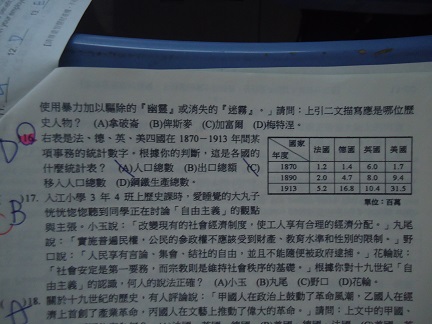 使用暴力加以驅除的『幽靈』或消失的『迷霧』。」請問：上引二文描寫應是哪位歷
史人物？ (A)拿破崙 (B)俾斯麥 (C)加富爾 (D)梅特涅。
16. 右表是法、德、英、美四國在 1870－1913 年間某
項事務的統計數字。根據你的判斷，這是各國的
什麼統計表？ (A)人口總數 (B)出口總額 (C)
移入人口總數 (D)鋼鐵生產總數。
國家 年度 法國 德國 英國 美國
1870 1.2 1.4 6.0 1.7
1890 2.0 4.7 8.0 9.4
1913 5.2 16.8 10.4 31.5
單位：百萬
17. 人江小學 3 年 4 班上歷史課時，愛睡覺的大丸子
恍恍惚惚聽到同學正在討論「自由主義」的觀點
與主張。小玉說：「改變現有的社會經濟制度，使工人享有合理的經濟分配。」丸尾
說：「實施普遍民權，公民的參政權不應該受到財產、教育水準和性別的限制。」野
口說：「人民享有言論、集會、結社的自由，並且不能隨便被政府逮捕。」花輪說：
「社會安定是第一要務，而宗教則是維持社會秩序的基礎。」根據你對十九世紀「自
由主義」的認識，何人的說法正確？ (A)小玉 (B)丸尾 (C)野口 (D)花輪。
18. 關於十九世紀的歷史，有人評論說：「甲國人在政治上鼓動了革命風潮，乙國人在經
濟上首創了產業革命，丙國人在文藝上推動了偉大的革命。」請問：上文中的甲國、